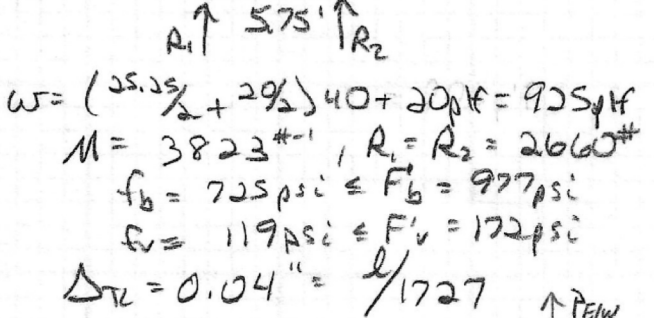 R₁↑ 5.75' ↑R₂
w = (25.25/2 + 20/2)40 + 20plf = 925plf
M = 3823#-', R₁ = R₂ = 2660#
fb = 725psi ≤ F'b = 977psi
fv = 119psi ≤ F'v = 172psi
ΔTL = 0.04" = l/1727
↑PE/W